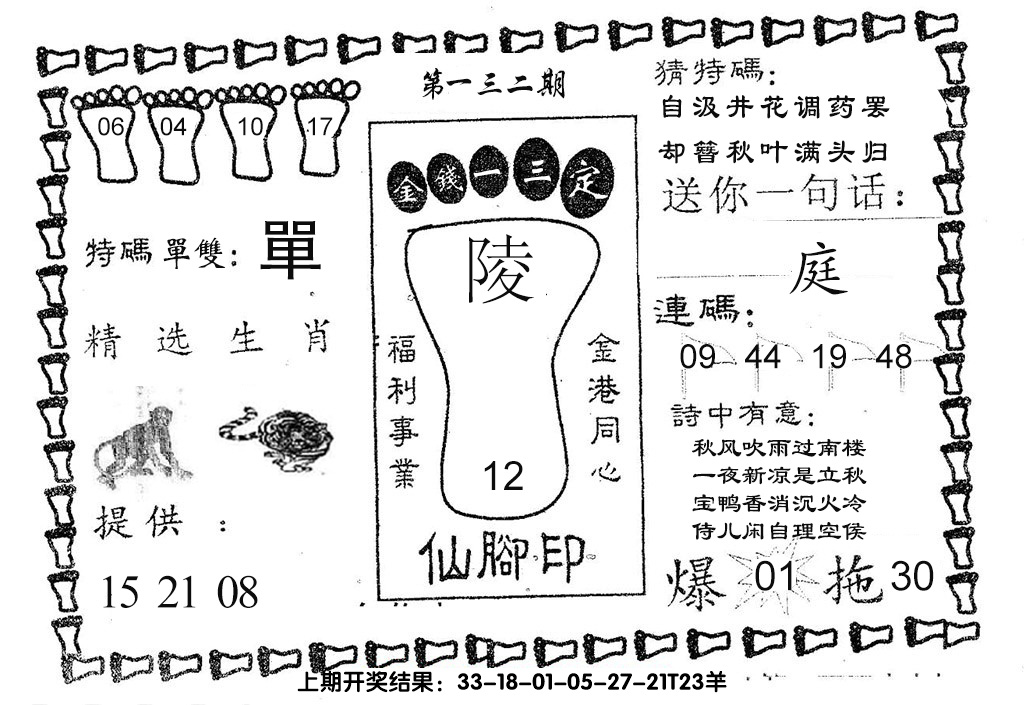 第一三二期
06 04 10 17
特碼單雙：單
精选生肖
提供：
15 21 08
金錢一三定
陵
福利事業
金港同心
12
仙腳印
猜特碼：
自汲井花调药罢
却簪秋叶满头归
送你一句话：
庭
連碼：
09 44 19 48
詩中有意：
秋风吹雨过南楼
一夜新凉是立秋
宝鸭香消沉火冷
侍儿闲自理空侯
爆 01 拖 30
上期开奖结果：33-18-01-05-27-21T23羊